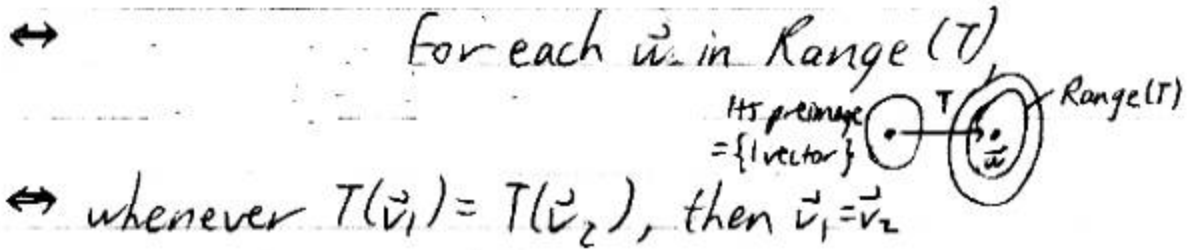 ↔ For each w⃗ in Range (T),
Its preimage
= {1 vector}
T
w⃗
Range(T)
↔ whenever T(v⃗₁) = T(v⃗₂), then v⃗₁ = v⃗₂